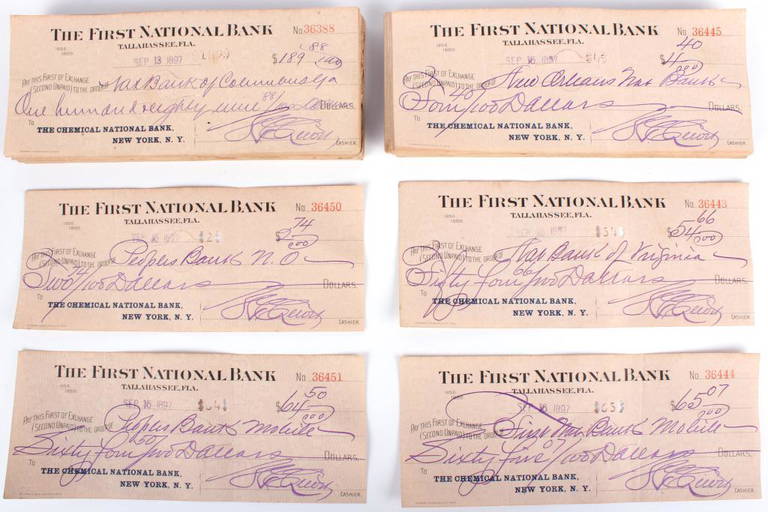 THE FIRST NATIONAL BANK No. 36388
TALLAHASSEE, FLA.
SEP 13 1897 $189 88/100
PAY THIS FIRST OF EXCHANGE
(SECOND UNPAID) TO THE ORDER OF Nat Bank of Columbus Ga
One hundred eighty nine 88/100 DOLLARS.
TO
THE CHEMICAL NATIONAL BANK,
NEW YORK, N. Y. CASHIER.
THE FIRST NATIONAL BANK No. 36445
TALLAHASSEE, FLA.
SEP 16 1897 $4 40/100
PAY THIS FIRST OF EXCHANGE
(SECOND UNPAID) TO THE ORDER New Orleans Nat Bank
Four 40/100 Dollars DOLLARS.
TO
THE CHEMICAL NATIONAL BANK,
NEW YORK, N. Y. CASHIER.
THE FIRST NATIONAL BANK No. 36450
TALLAHASSEE, FLA.
SEP 16 1897 $2 74/100
PAY THIS FIRST OF EXCHANGE
(SECOND UNPAID) TO THE ORDER Peoples Bank N.O.
Two 74/100 Dollars DOLLARS.
TO
THE CHEMICAL NATIONAL BANK,
NEW YORK, N. Y. CASHIER.
THE FIRST NATIONAL BANK No. 36443
TALLAHASSEE, FLA.
SEP 16 1897 66/100
PAY THIS FIRST OF EXCHANGE
(SECOND UNPAID) TO THE ORDER Nat Bank of Virginia
four 66/100 Dollars DOLLARS.
TO
THE CHEMICAL NATIONAL BANK,
NEW YORK, N. Y. CASHIER.
THE FIRST NATIONAL BANK No. 36451
TALLAHASSEE, FLA.
SEP 16 1897 $64 $64 50/100
PAY THIS FIRST OF EXCHANGE
(SECOND UNPAID) TO THE ORDER Peoples Bank Mobile
Sixty four 50/100 Dollars DOLLARS.
TO
THE CHEMICAL NATIONAL BANK,
NEW YORK, N. Y. CASHIER.
THE FIRST NATIONAL BANK No. 36444
TALLAHASSEE, FLA.
SEP 16 1897 $65 $65 07/100
PAY THIS FIRST OF EXCHANGE
(SECOND UNPAID) TO THE ORDER First Nat Bank Mobile
Sixty five 07/100 Dollars DOLLARS.
TO
THE CHEMICAL NATIONAL BANK,
NEW YORK, N. Y. CASHIER.